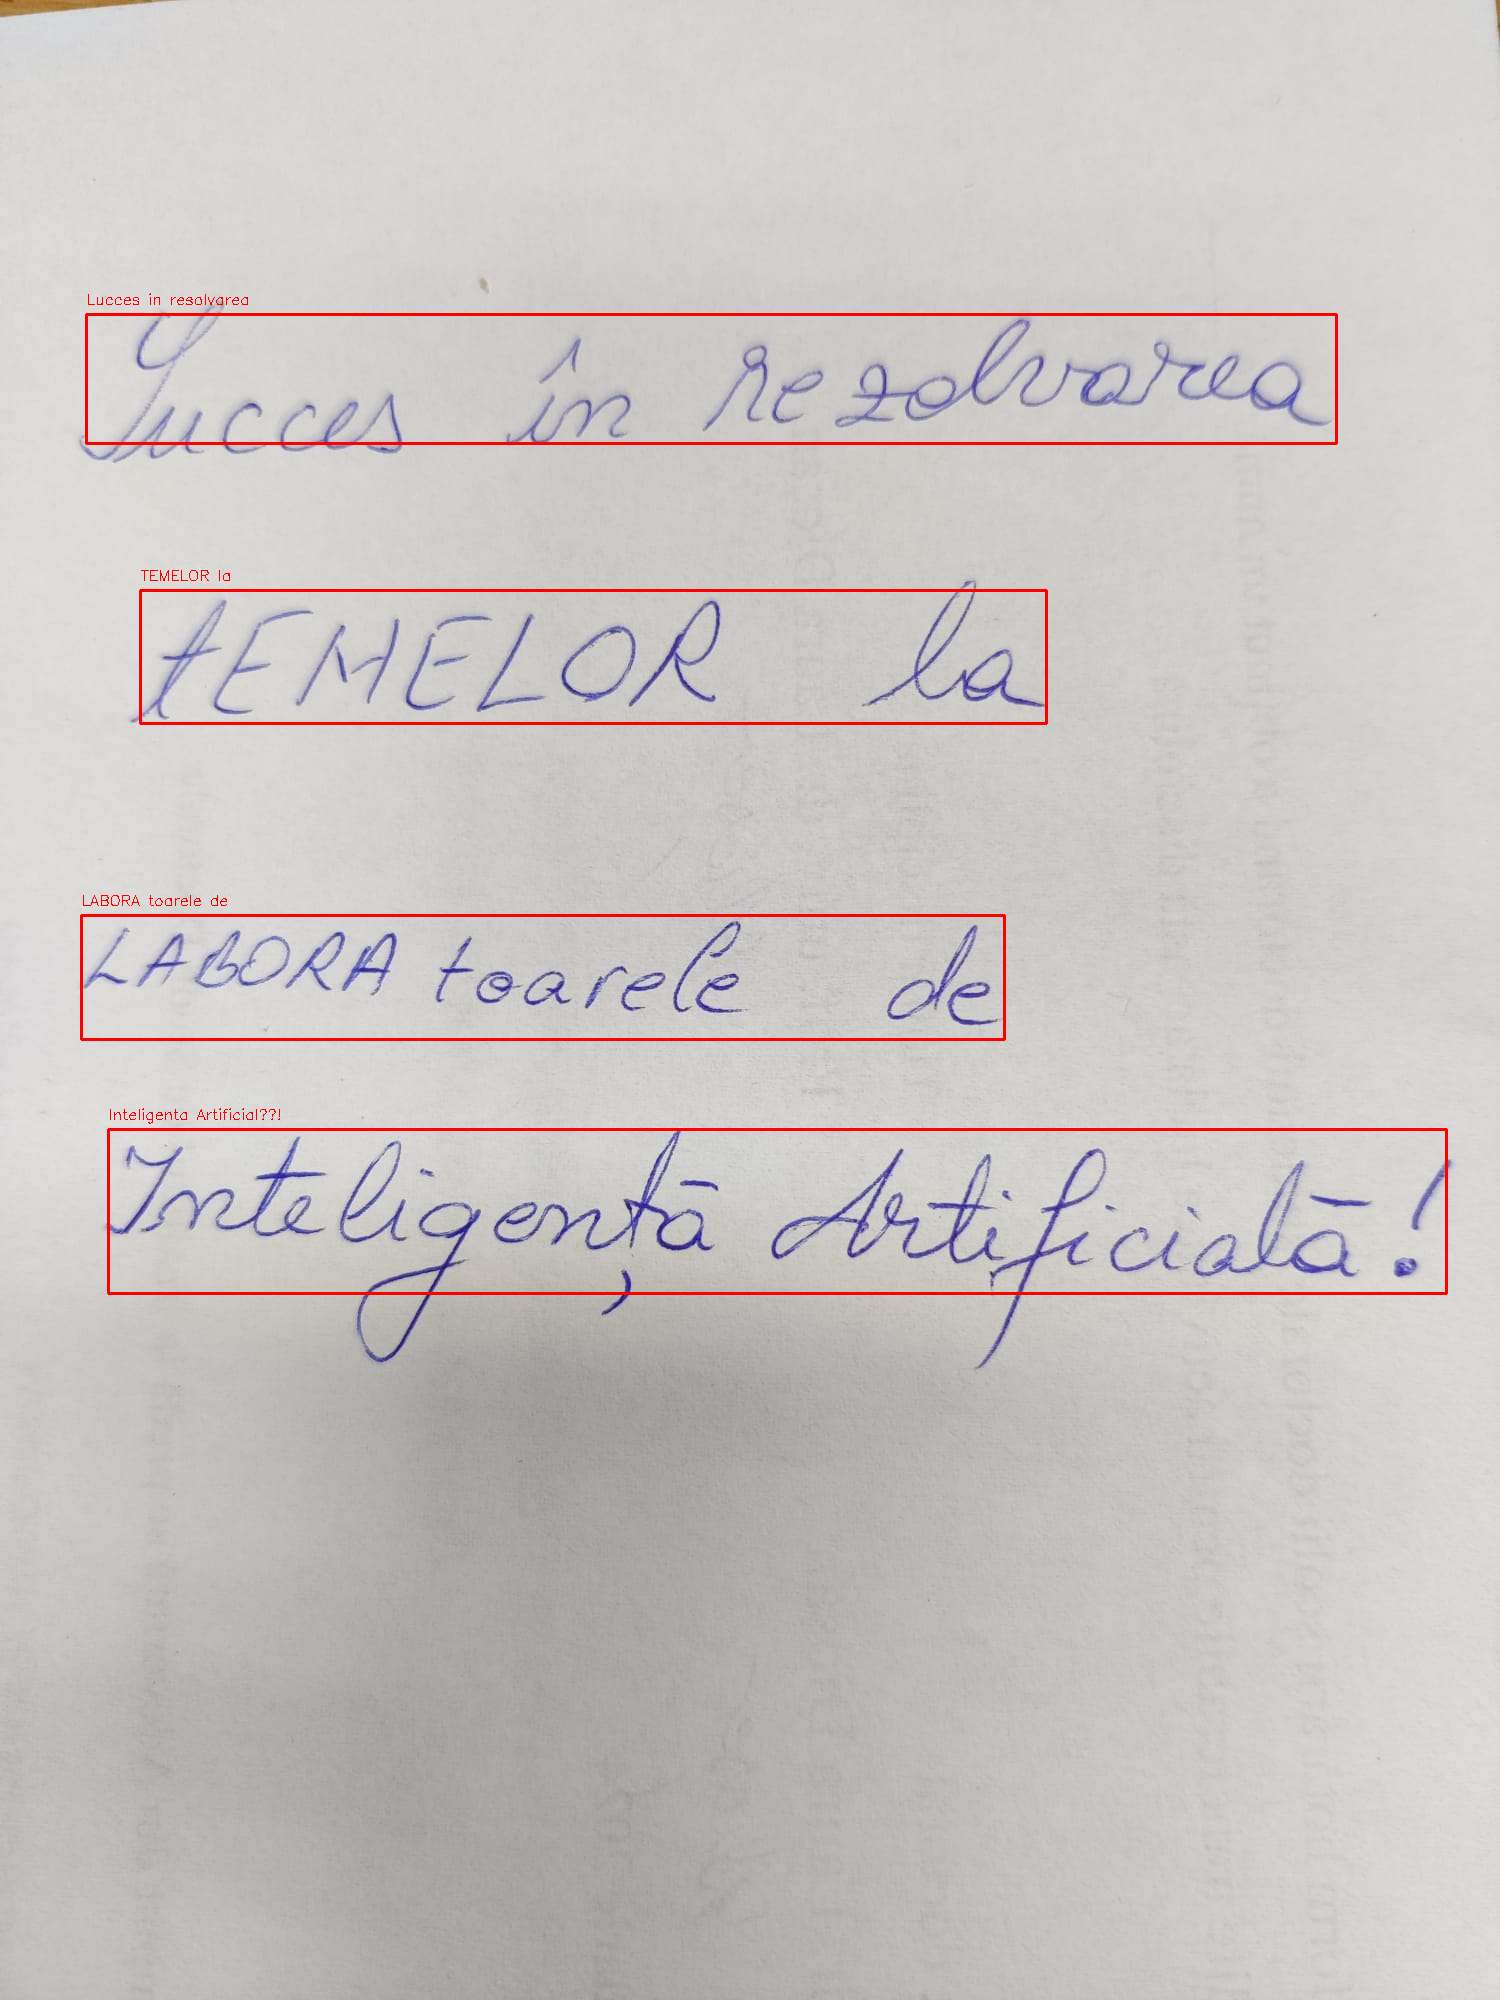 Lucces in resolvarea
Succes în rezolvarea
TEMELOR la
tEMELOR la
LABORA toarele de
LABORA toarele de
Inteligenta Artificial??!
Inteligență Artificială!